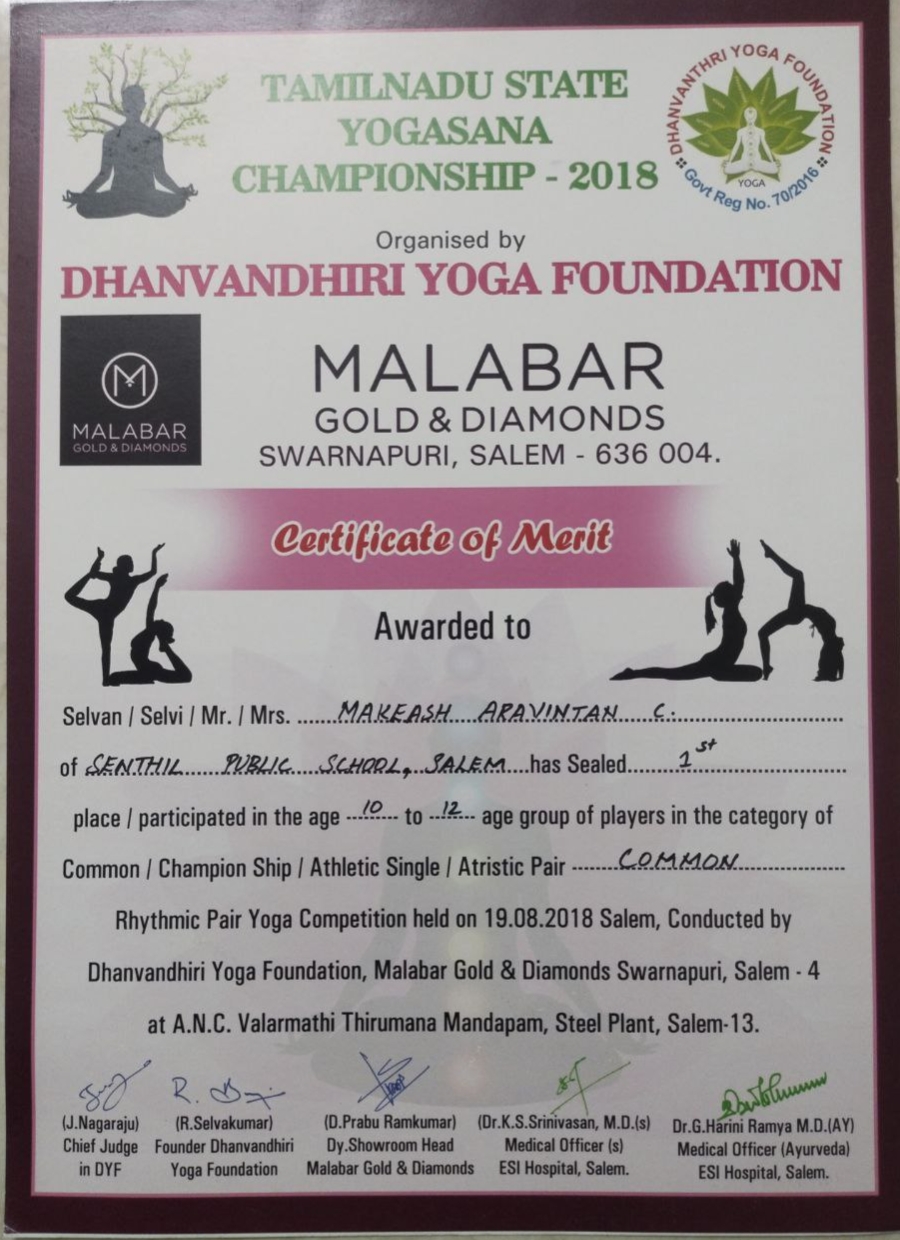 TAMILNADU STATE
YOGASANA
CHAMPIONSHIP - 2018
DHANVANTHRI YOGA FOUNDATION
YOGA
Govt Reg No. 70/2016
Organised by
DHANVANDHIRI YOGA FOUNDATION
MALABAR
GOLD & DIAMONDS
MALABAR
GOLD & DIAMONDS
SWARNAPURI, SALEM - 636 004.
Certificate of Merit
Awarded to
Selvan / Selvi / Mr. / Mrs. ...... MAKEASH ARAVINTAN C. ......
of SENTHIL PUBLIC SCHOOL, SALEM ... has Sealed ...... 1st ......
place / participated in the age ... 10 ... to ... 12 ... age group of players in the category of
Common / Champion Ship / Athletic Single / Atristic Pair ...... COMMON ......
Rhythmic Pair Yoga Competition held on 19.08.2018 Salem, Conducted by
Dhanvandhiri Yoga Foundation, Malabar Gold & Diamonds Swarnapuri, Salem - 4
at A.N.C. Valarmathi Thirumana Mandapam, Steel Plant, Salem-13.
(J.Nagaraju)
Chief Judge
in DYF
(R.Selvakumar)
Founder Dhanvandhiri
Yoga Foundation
(D.Prabu Ramkumar)
Dy.Showroom Head
Malabar Gold & Diamonds
(Dr.K.S.Srinivasan, M.D.(s)
Medical Officer (s)
ESI Hospital, Salem.
Dr.G.Harini Ramya M.D.(AY)
Medical Officer (Ayurveda)
ESI Hospital, Salem.